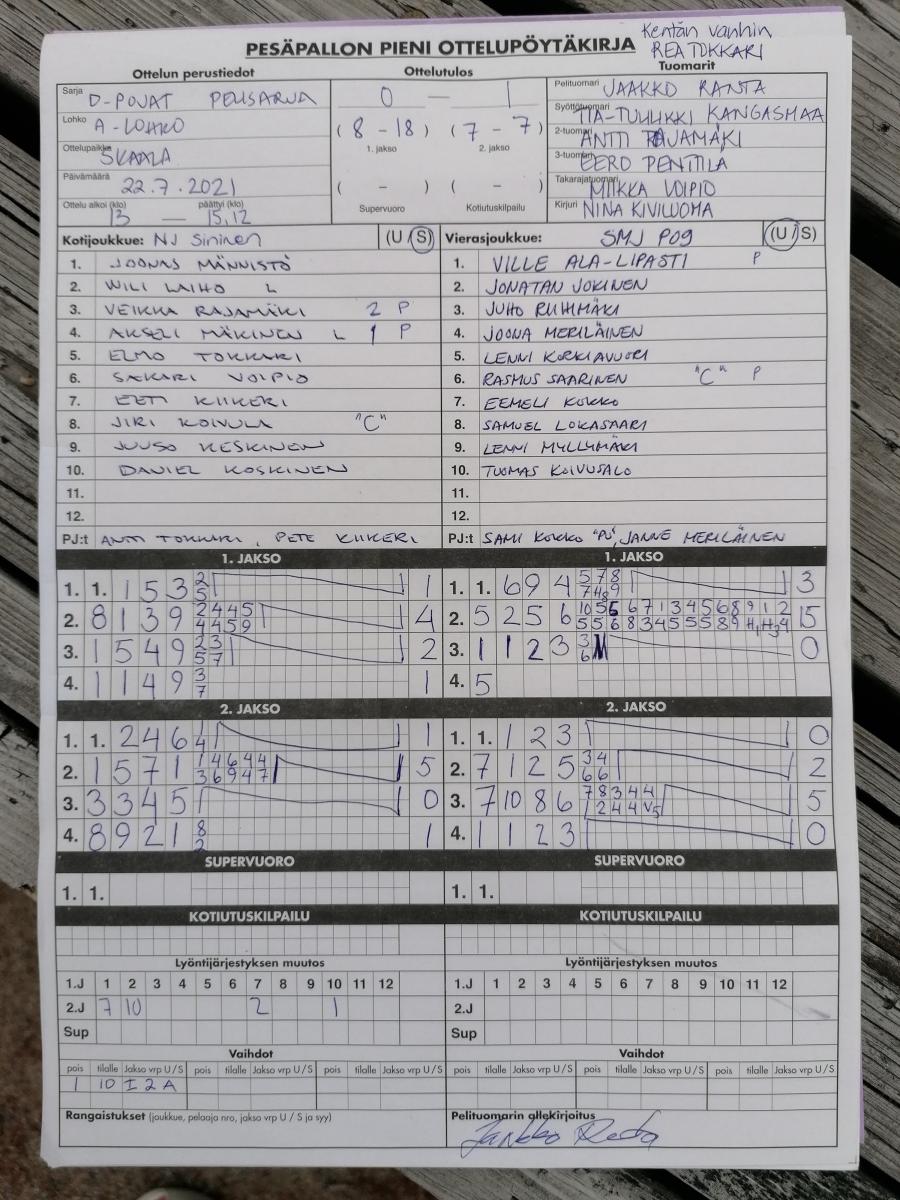 Kentän vanhin
REA TOKKARI
PESÄPALLON PIENI OTTELUPÖYTÄKIRJA
Ottelun perustiedot
Ottelutulos
Tuomarit
Sarja D-POJAT PELISARJA
0 — 1
Pelituomari JAAKKO RANTA
Lohko A-LOHKO
(8 - 18) (7 - 7)
1. jakso 2. jakso
Syöttötuomari TIA-TUULIKKI KANGASMAA
Ottelupaikka SKAALA
2-tuomari ANTTI RAJAMÄKI
3-tuomari EERO PENTTILÄ
Päivämäärä 22.7.2021
( - ) ( - )
Takarajatuomari MIIKKA VOIPIO
Ottelu alkoi (klo) päättyi (klo)
13 — 15,12
Supervuoro Kotiutuskilpailu
Kirjuri NINA KIVILUOMA
Kotijoukkue: NJ Sininen (U / S)
Vierasjoukkue: SMJ P09 (U / S)
1. JOONAS MÄNNISTÖ
2. WILI LAIHO L
3. VEIKKA RAJAMÄKI 2 P
4. AKSELI MÄKINEN L 1 P
5. ELMO TOKKARI
6. SAKARI VOIPIO
7. EETI KIIKERI
8. JIRI KOIVULA "C"
9. JUUSO KESKINEN
10. DANIEL KOSKINEN
11.
12.
PJ:t ANTTI TOKKARI, PETE KIIKERI
1. VILLE ALA-LIPASTI P
2. JONATAN JOKINEN
3. JUHO RUHMÄKI
4. JOONA MERILÄINEN
5. LENNI KORKIAVUORI
6. RASMUS SAARINEN "C" P
7. EEMELI KOKKO
8. SAMUEL LOKASAARI
9. LENNI MYLLYMÄKI
10. TUOMAS KOIVUSALO
11.
12.
PJ:t SAMI KOKKO "PJ", JANNE MERILÄINEN
1. JAKSO
1. 1. 1 5 3 2 1
5
2. 8 1 3 9 2 4 4 5 4
4 4 5 9
3. 1 5 4 9 2 3 2
5 7
4. 1 1 4 9 3 1
7
1. JAKSO
1. 1. 6 9 4 5 7 8 3
2. 5 2 5 6 10 5 5 6 7 1 3 4 5 6 8 9 1 2 15
3. 1 1 2 3 3 0
6
4. 5
2. JAKSO
1. 1. 2 4 6 4 1
2. 1 5 7 1 1 4 6 4 4 5
3 6 9 4 7
3. 3 3 4 5 0
4. 8 9 2 1 8 1
2
2. JAKSO
1. 1. 1 2 3 0
2. 7 1 2 5 3 4 2
6 6
3. 7 10 8 6 7 8 3 4 4 5
1 2 4 4 V5
4. 1 1 2 3 0
SUPERVUORO
1. 1.
SUPERVUORO
1. 1.
KOTIUTUSKILPAILU
KOTIUTUSKILPAILU
Lyöntijärjestyksen muutos
1.J 1 2 3 4 5 6 7 8 9 10 11 12
2.J 7 10 2 1
Sup
Lyöntijärjestyksen muutos
1.J 1 2 3 4 5 6 7 8 9 10 11 12
2.J
Sup
Vaihdot
pois tilalle Jakso vrp U / S pois tilalle Jakso vrp U / S pois tilalle Jakso vrp U / S
1 10 I 2 A
Vaihdot
pois tilalle Jakso vrp U / S pois tilalle Jakso vrp U / S pois tilalle Jakso vrp U / S
Rangaistukset (joukkue, pelaaja nro, jakso vrp U / S ja syy)
Pelituomarin allekirjoitus
Jaakko Ranta